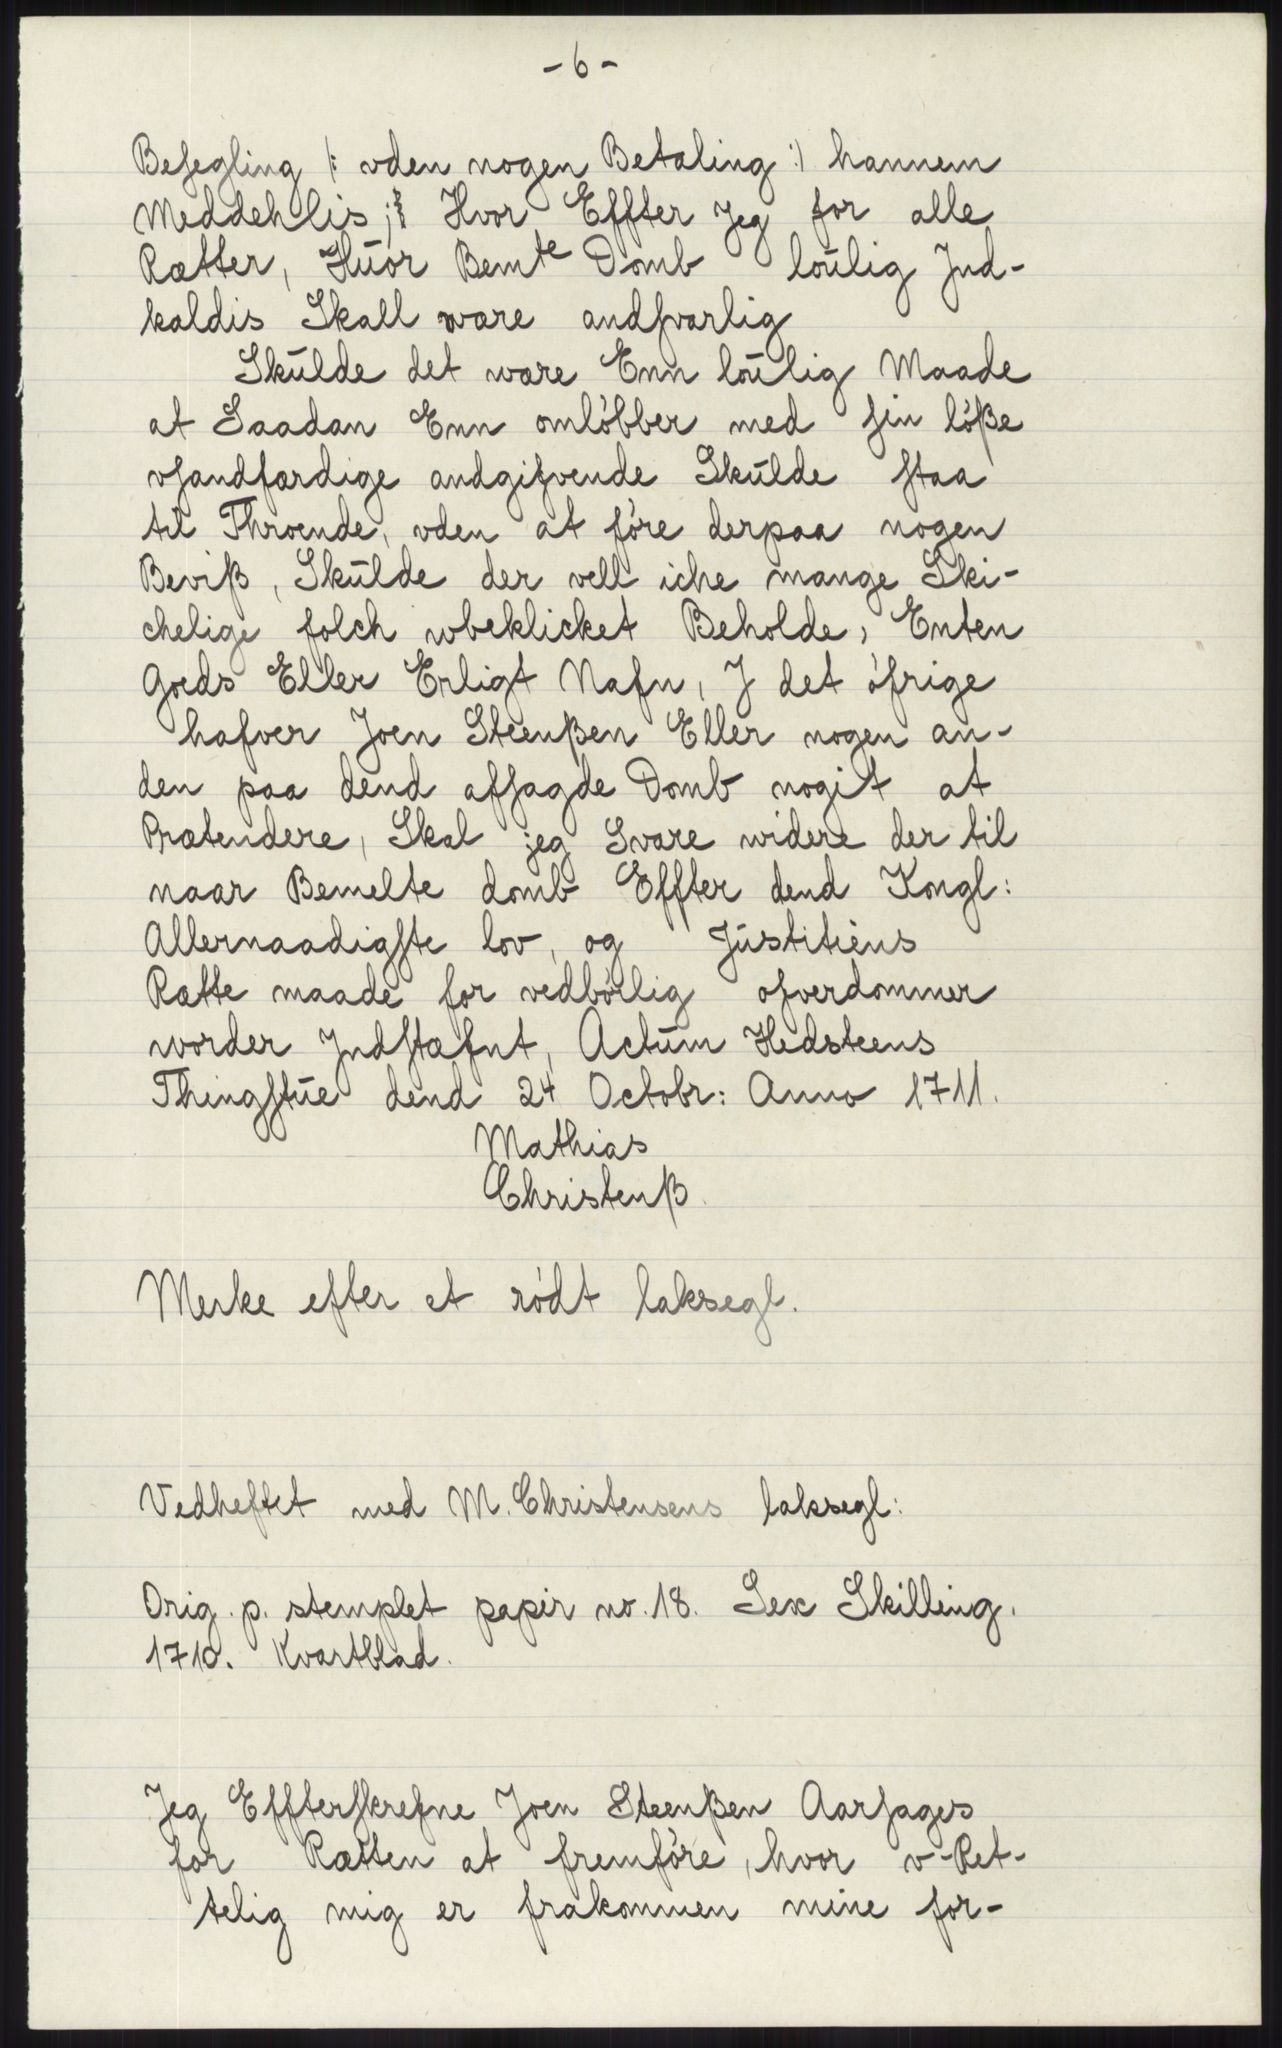 -6-
Besegling (: vden nogen Betaling :) hannem
Meddehlis; Hvor Effter Jeg for alle
Rætter, Húor Bemte Domb loúlig Jnd-
kaldis Skall wære andsvarlig
Skúlde det være Enn loúlig Maade
at Saadan Enn omlöbber med sin löße
vsandfærdige andgifvende Skúlde staa
til Throende, vden at före derpaa nogen
Beviß, Skúlde der vell iche mange Ski-
chelige folch wbeklicket Beholde, Enten
Gods Eller Erligt Nafn, J det öfrige
hafver Joen Steenßen Eller nogen an-
den paa dend afsagde Domb nogit at
Prætendere, Skal jeg Svare widere der til
naar Bemelte domb Effter dend Kongl:
Allernaadigste lov, og Jústitiens
Rætte maade for vedbörlig ofverdommer
worder Jndstæfnt, Actúm Hedsteens
Thingstúe dend 24 Octobr: Anno 1711.
Mathias
Christenß.
Merke efter et rödt laksegl.
Vedheftet med M. Christensens laksegl:
Orig. p. stemplet papir no. 18. Sex Skilling.
1710. Kvartblad.
Jeg Effterskrefne Joen Steenßen Aarsages
for Rætten at fremföre, hvor v-Ret-
telig mig er frakommen mine for-